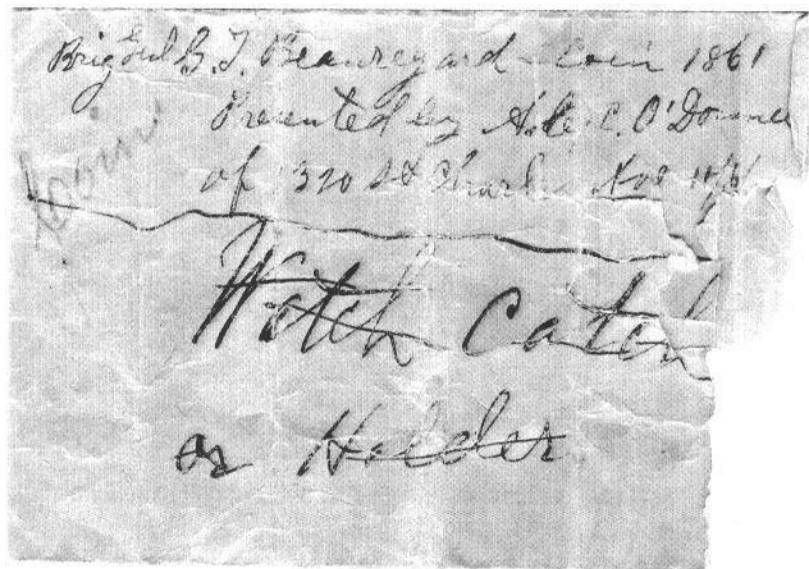 Brig Genl G. T. Beauregard - Coin 1861
Presented by C. O'Donnel
of 1370 St Charles Nov
Coin
Watch Catch
or Holder